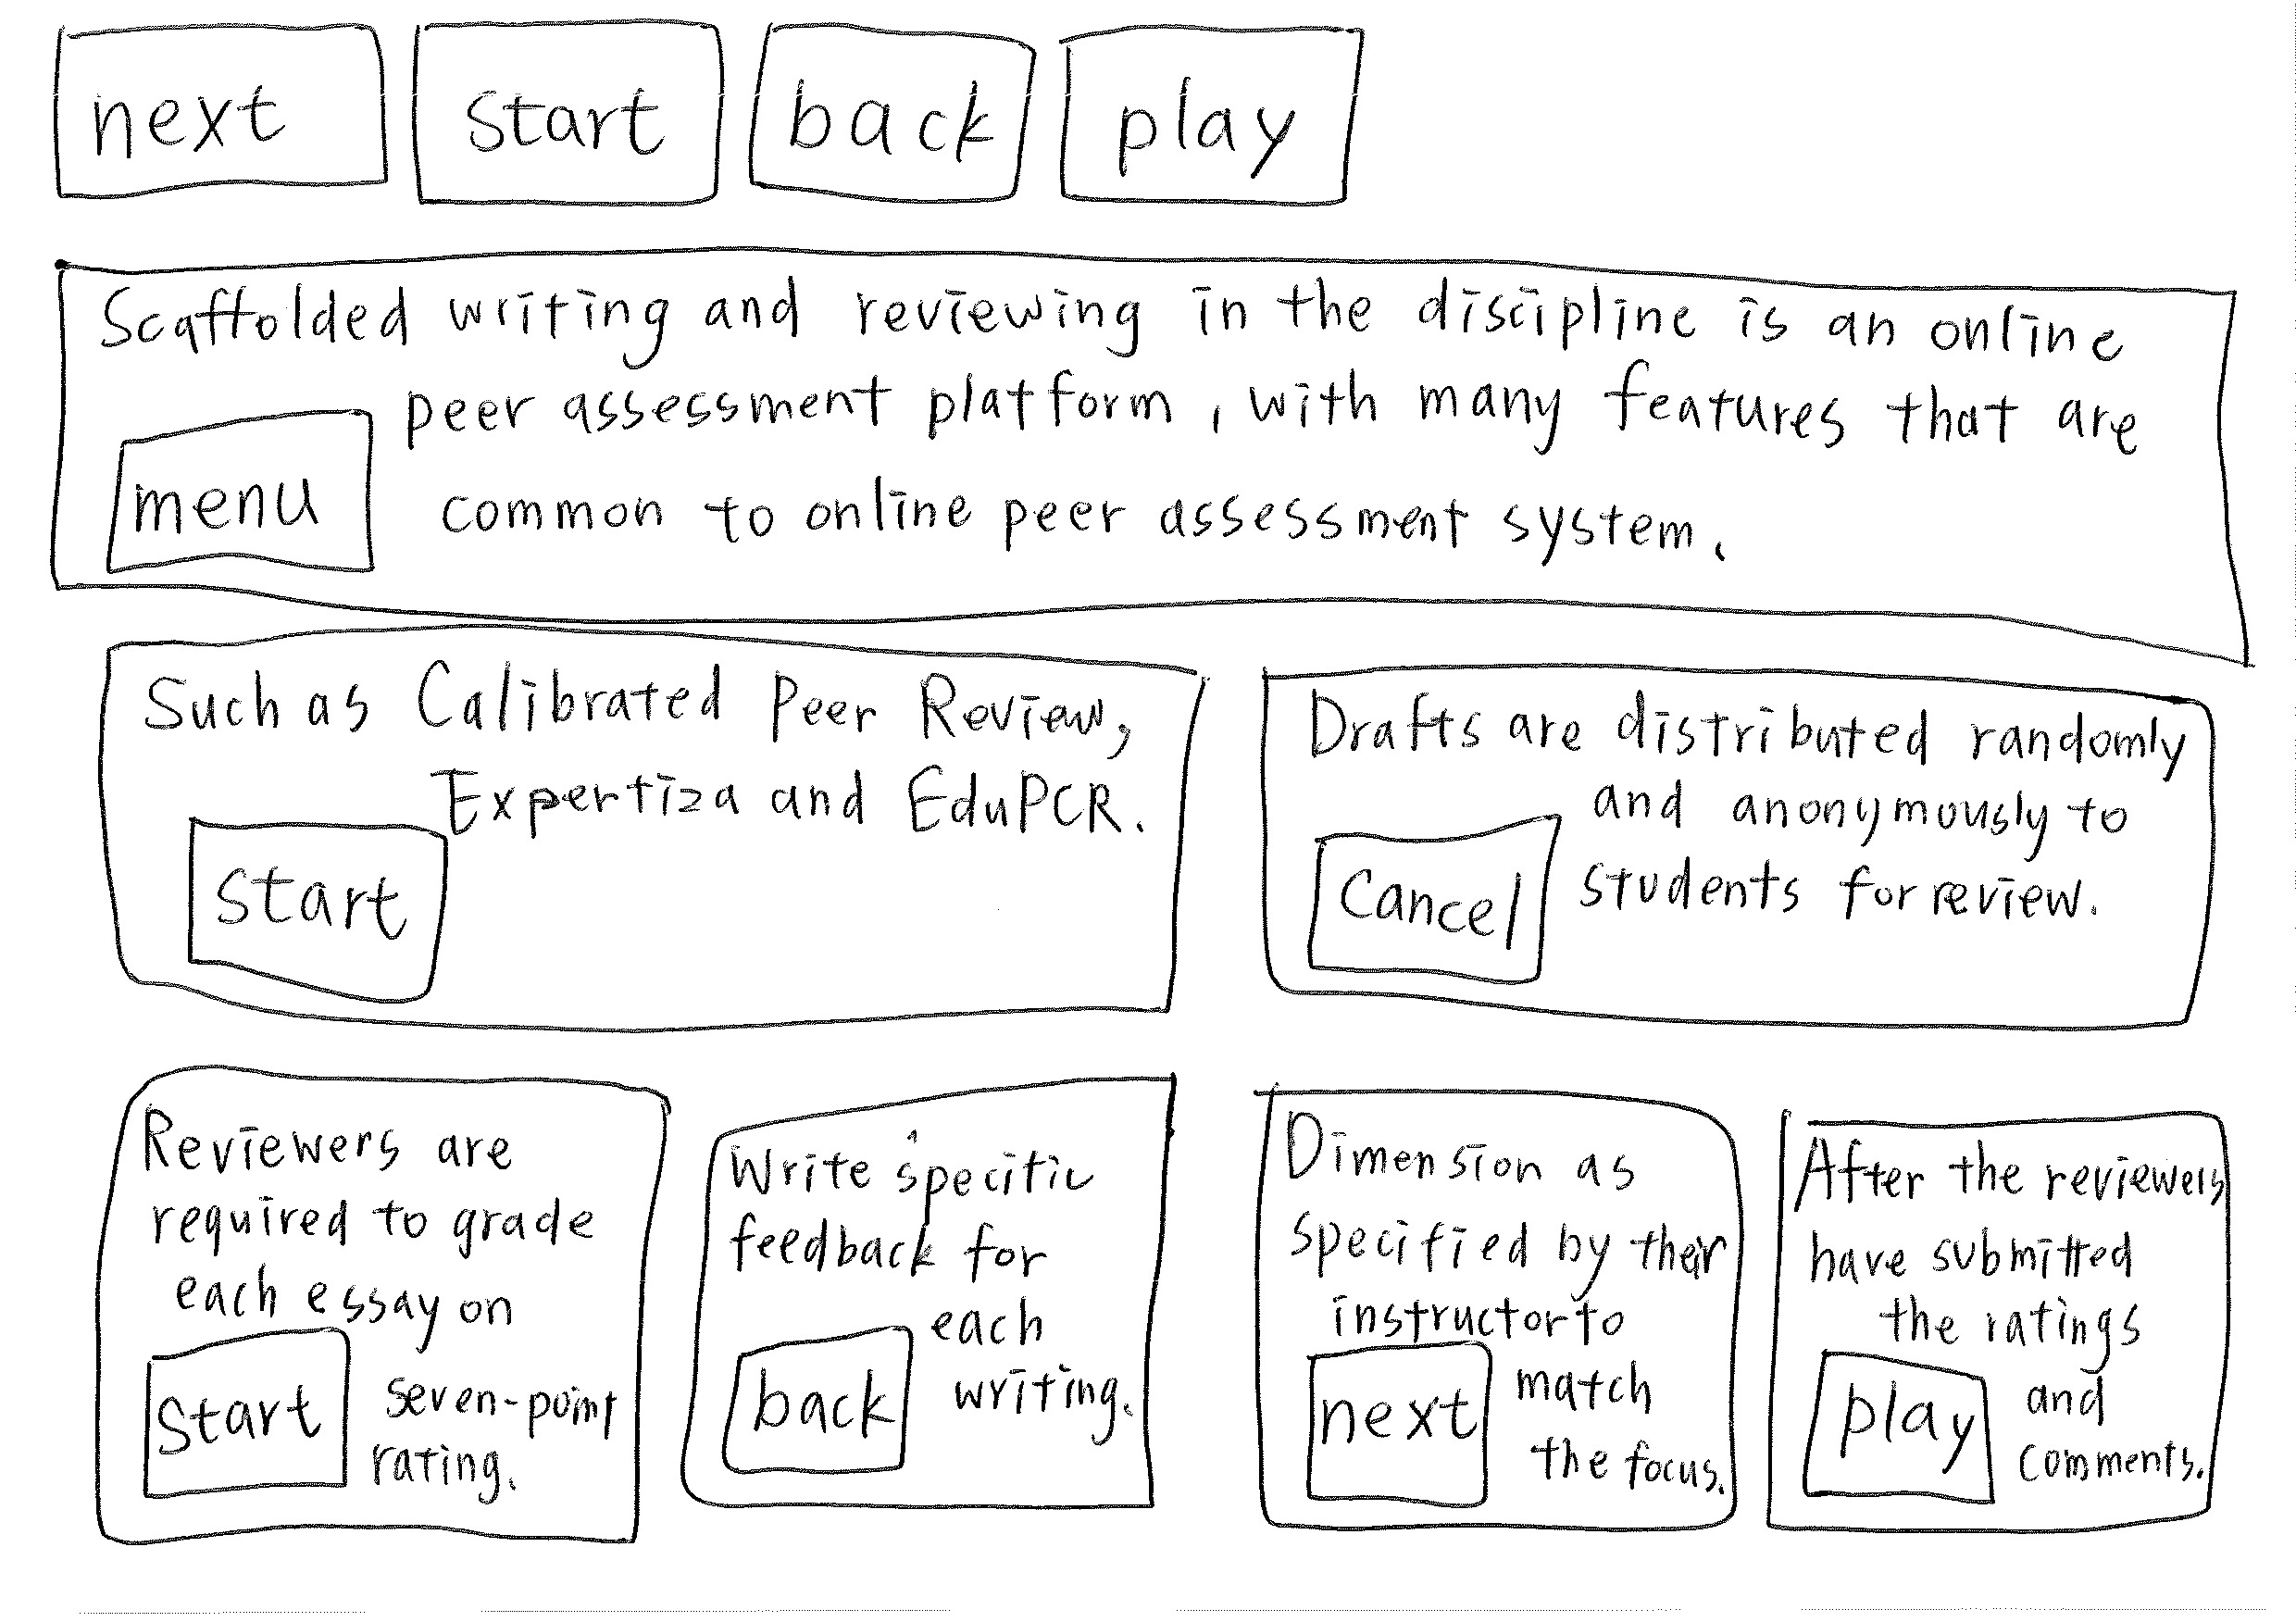 next start back play
Scaffolded writing and reviewing in the discipline is an online
peer assessment platform, with many features that are
menu
common to online peer assessment system.
Such as Calibrated Peer Review,
Expertiza and EduPCR.
start
Drafts are distributed randomly
and anonymously to
Cancel
students for review.
Reviewers are
required to grade
each essay on
start
seven-point
rating.
Write specific
feedback for
each
back
writing.
Dimension as
specified by their
instructor to
next
match
the focus.
After the reviewers
have submitted
the ratings
play
and
comments.